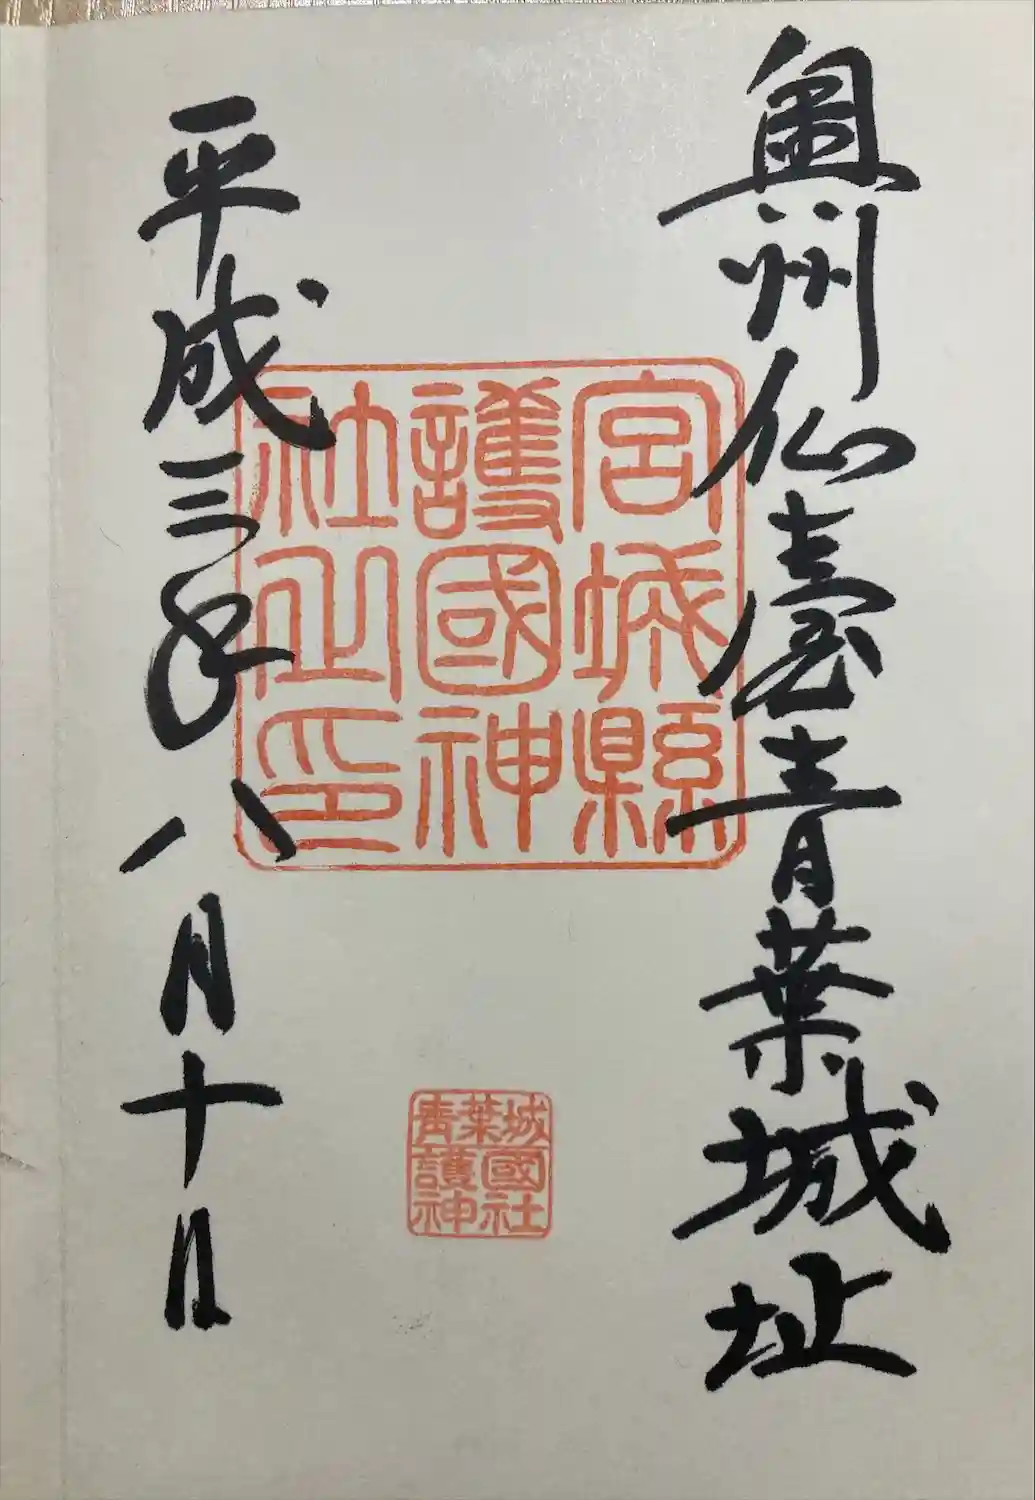 奥州仙臺青葉城址
宮城縣
護國神
社之印
青葉城
護國
神社
平成三年八月十日